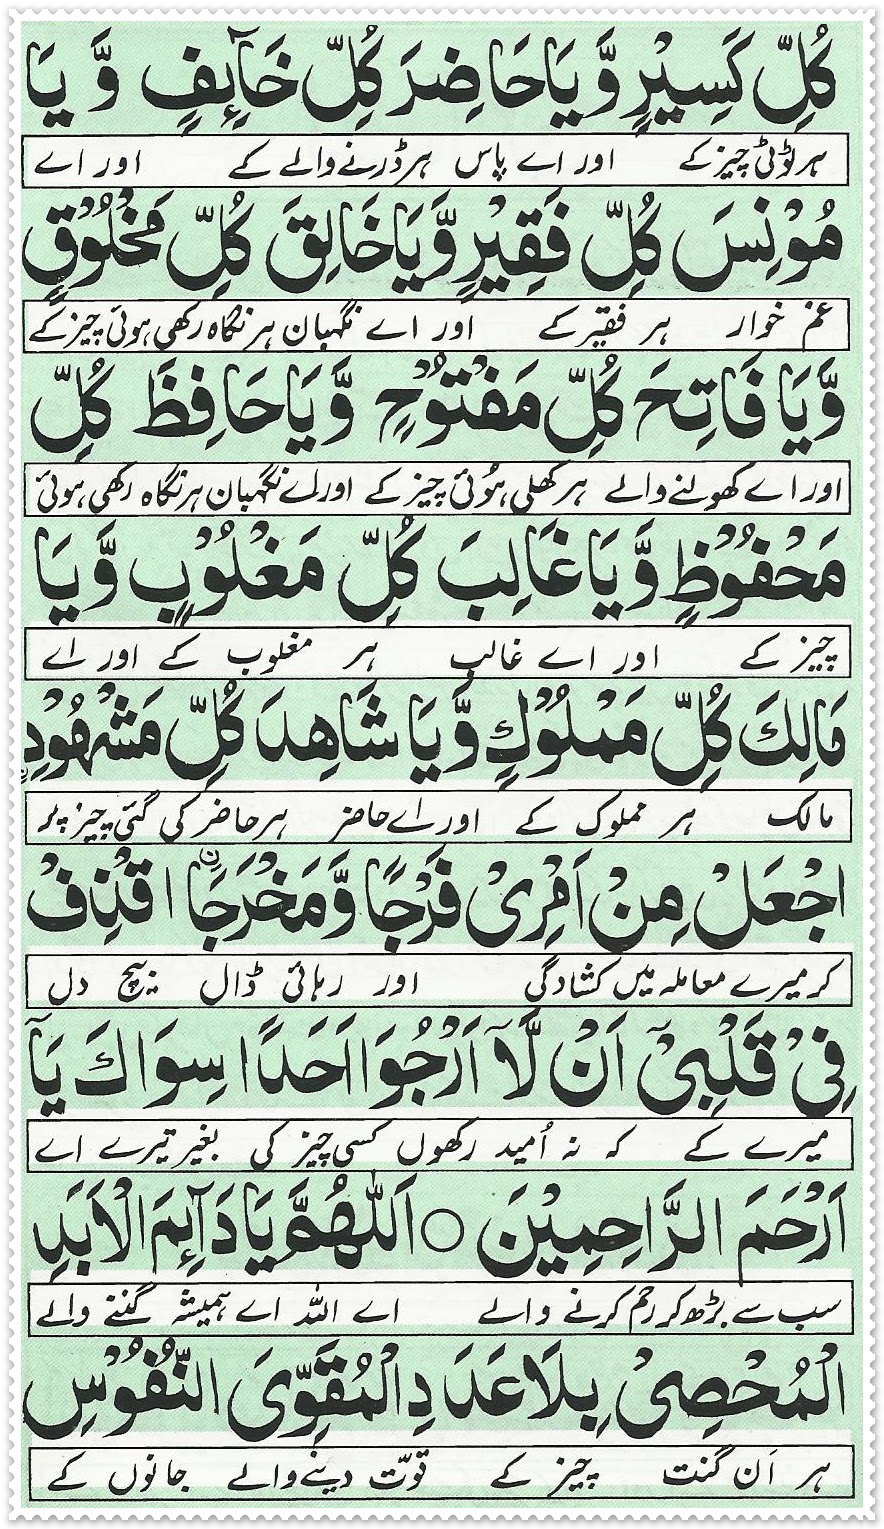 كُلِّ كَسِيْرٍ وَّيَا حَاضِرَ كُلِّ خَآئِفٍ وَّ يَا
ہر ٹوٹی چیز کے اور اے پاس ہر ڈرنے والے کے اور اے
مُوْنِسَ كُلِّ فَقِيْرٍ وَّيَا خَالِقَ كُلِّ مَخْلُوْقٍ
غم خوار ہر فقیر کے اور اے نگہبان ہر نگاہ رکھی ہوئی چیز کے
وَّيَا فَاتِحَ كُلِّ مَفْتُوْحٍ وَّيَا حَافِظَ كُلِّ
اور اے کھولنے والے ہر کھلی ہُوئی چیز کے اور اے نگہبان ہر نگاہ رکھی ہوئی
مَحْفُوْظٍ وَّيَا غَالِبَ كُلِّ مَغْلُوْبٍ وَّيَا
چیز کے اور اے غالب ہر مغلوب کے اور اے
مَالِكَ كُلِّ مَمْلُوْكٍ وَّيَا شَاهِدَ كُلِّ مَشْهُوْدٍ
مالک ہر مملوک کے اور اے حاضر ہر حاضر کی گئی چیز پر
اجْعَلْ مِنْ اَمْرِىْ فَرَجًا وَّمَخْرَجًا ۨ اقْذِفْ
کر میرے معاملہ میں کشادگی اور رہائی ڈال بیچ دل
فِىْ قَلْبِىْٓ اَنْ لَّآ اَرْجُوَا اَحَدًا سِوَاكَ يَآ
میرے کے کہ نہ اُمید رکھوں کسی چیز کی بغیر تیرے اے
اَرْحَمَ الرَّاحِمِيْنَ ○ اَللّٰهُمَّ يَا دَآئِمَ الْاَبَدِ
سب سے بڑھ کر رحم کرنے والے اے اللہ اے ہمیشہ گننے والے
الْمُحْصِىْ بِلَا عَدَدِ الْمُقَوِّىَ النُّفُوْسِ
ہر اَن گنت چیز کے قوّت دینے والے جانوں کے